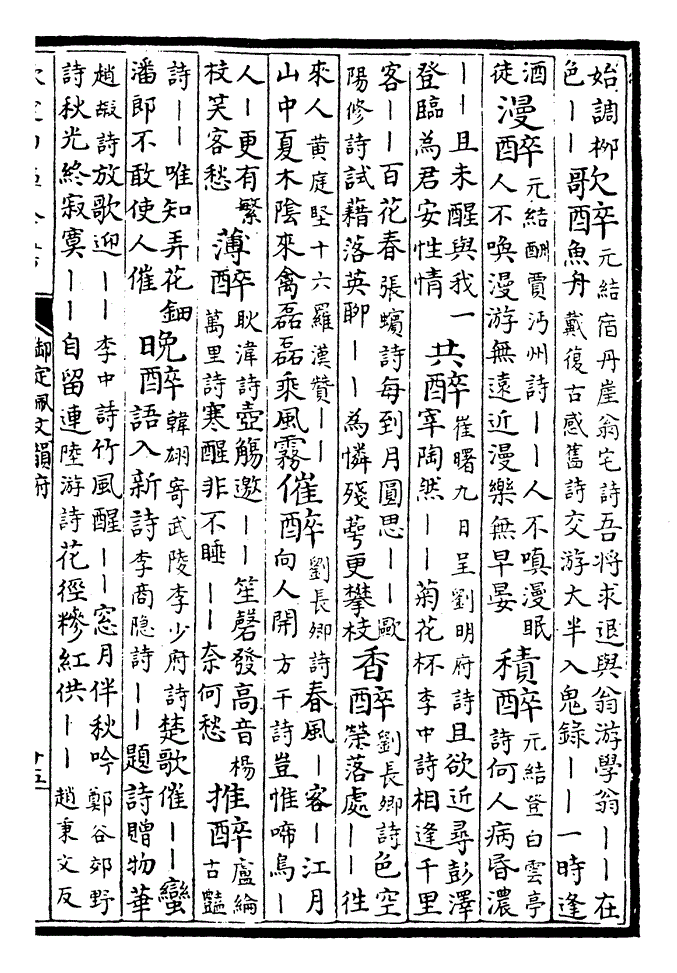 始調柳
色――
歌醉
元結宿丹崖翁宅詩吾將求退與翁游學翁――在
魚舟戴復古感舊詩交游大半入鬼錄――一時逢
酒
徒
漫醉
元結酬賈沔州詩――人不嗔漫眠
人不喚漫游無遠近漫樂無早晏
積醉
元結登白雲亭
詩何人病昏濃
――且未醒與我一
登臨為君安性情
共醉
崔曙九日呈劉明府詩且欲近尋彭澤
宰陶然――菊花杯李中詩相逢千里
客――百花春張蠙詩每到月圓思――歐
陽修詩試藉落英聊――為憐殘萼更攀枝
香醉
劉長卿詩色空
榮落處――往
來人黃庭堅十六羅漢贊――
山中夏木陰來禽磊磊乘風霧
催醉
劉長卿詩春風―客―江月
向人開方干詩豈惟啼鳥―
人―更有繁
枝笑客愁
薄醉
耿湋詩壺觴邀――笙磬發高音楊
萬里詩寒醒非不睡――奈何愁
推醉
盧綸
古豔
詩――唯知弄花鈿
潘郎不敢使人催
晚醉
韓翃寄武陵李少府詩楚歌催――蠻
語入新詩李商隱詩――題詩贈物華
趙嘏詩放歌迎――李中詩竹風醒――窗月伴秋吟鄭谷郊野
詩秋光終寂寞――自留連陸游詩花徑糝紅供――趙秉文反
御定佩文韻府